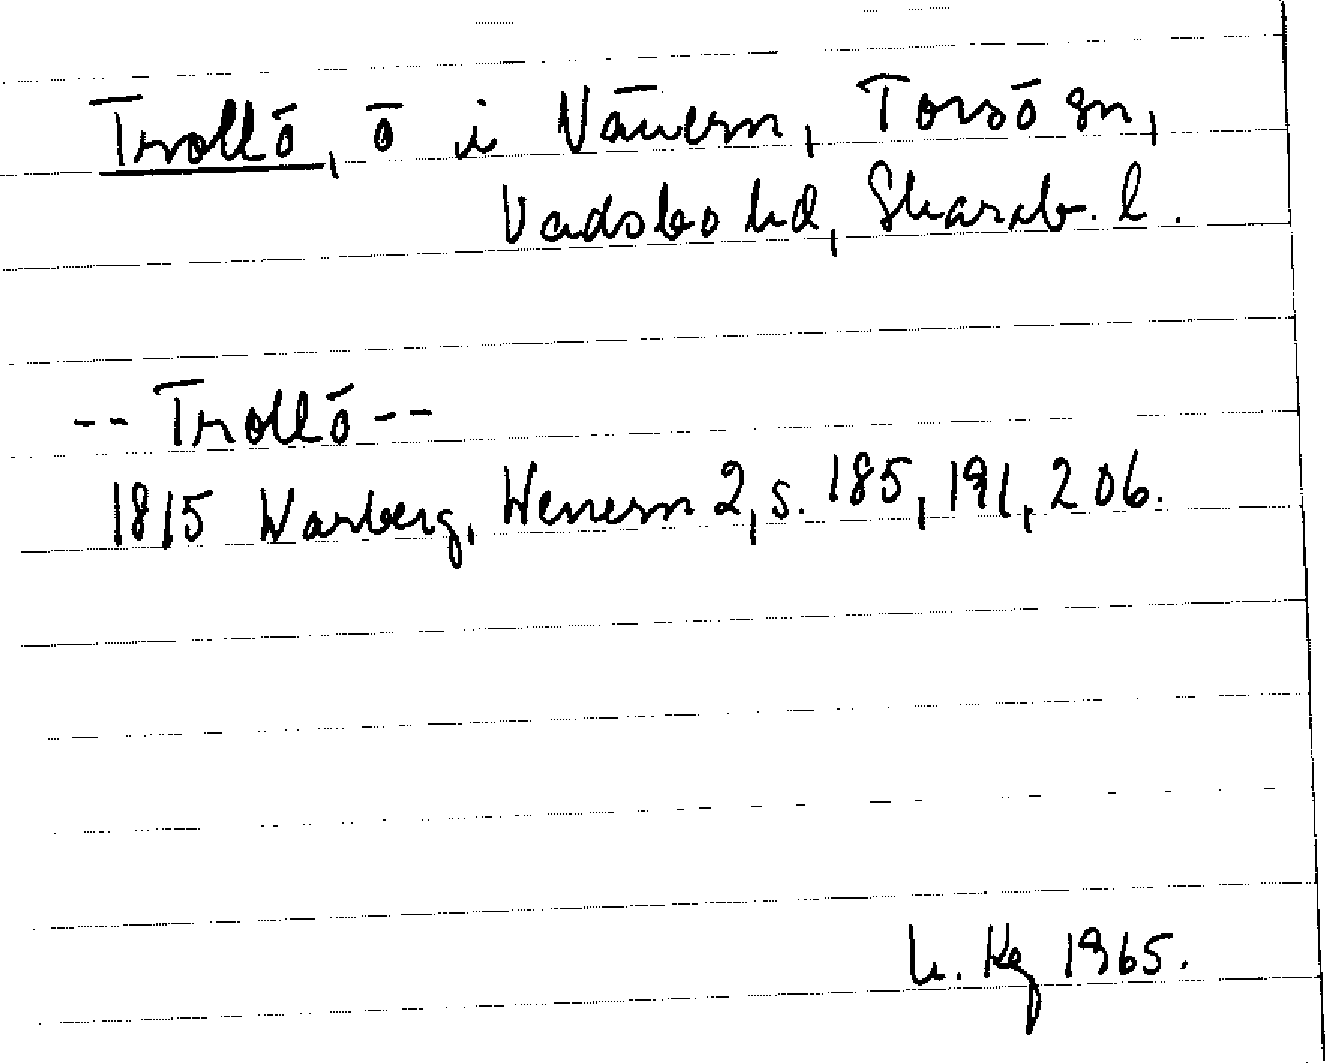 Trollö, ö i Vänern, Torsö sn,
Vadsbo hd, Skarab. l.
-- Trollö --
1815 Warberg, Wenern 2, s. 185, 191, 206.
1965.